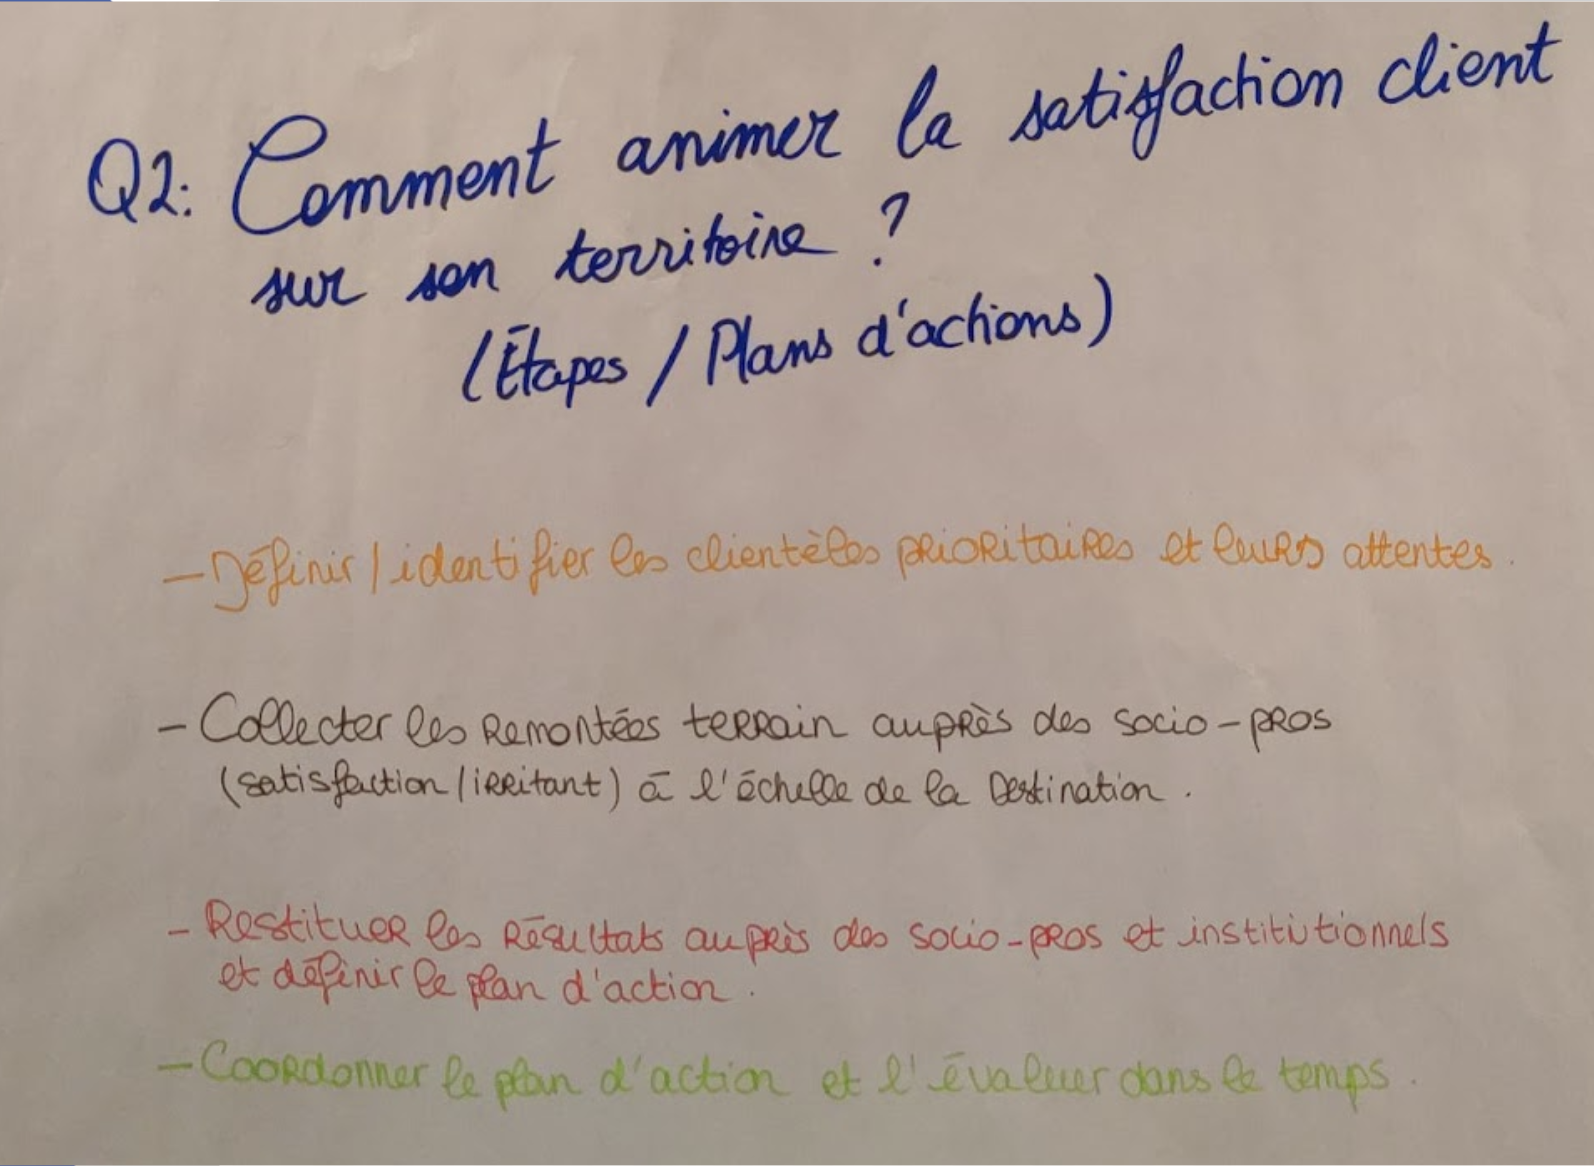 Q2: Comment animer la satisfaction client
sur son territoire ?
(Étapes / Plans d'actions)
- Définir / identifier les clientèles prioritaires et leurs attentes.
- Collecter les remontées terrain auprès des socio-pros
(satisfaction / irritant) à l'échelle de la Destination.
- Restituer les résultats auprès des socio-pros et institutionnels
et définir le plan d'action.
- Coordonner le plan d'action et l'évaluer dans le temps.